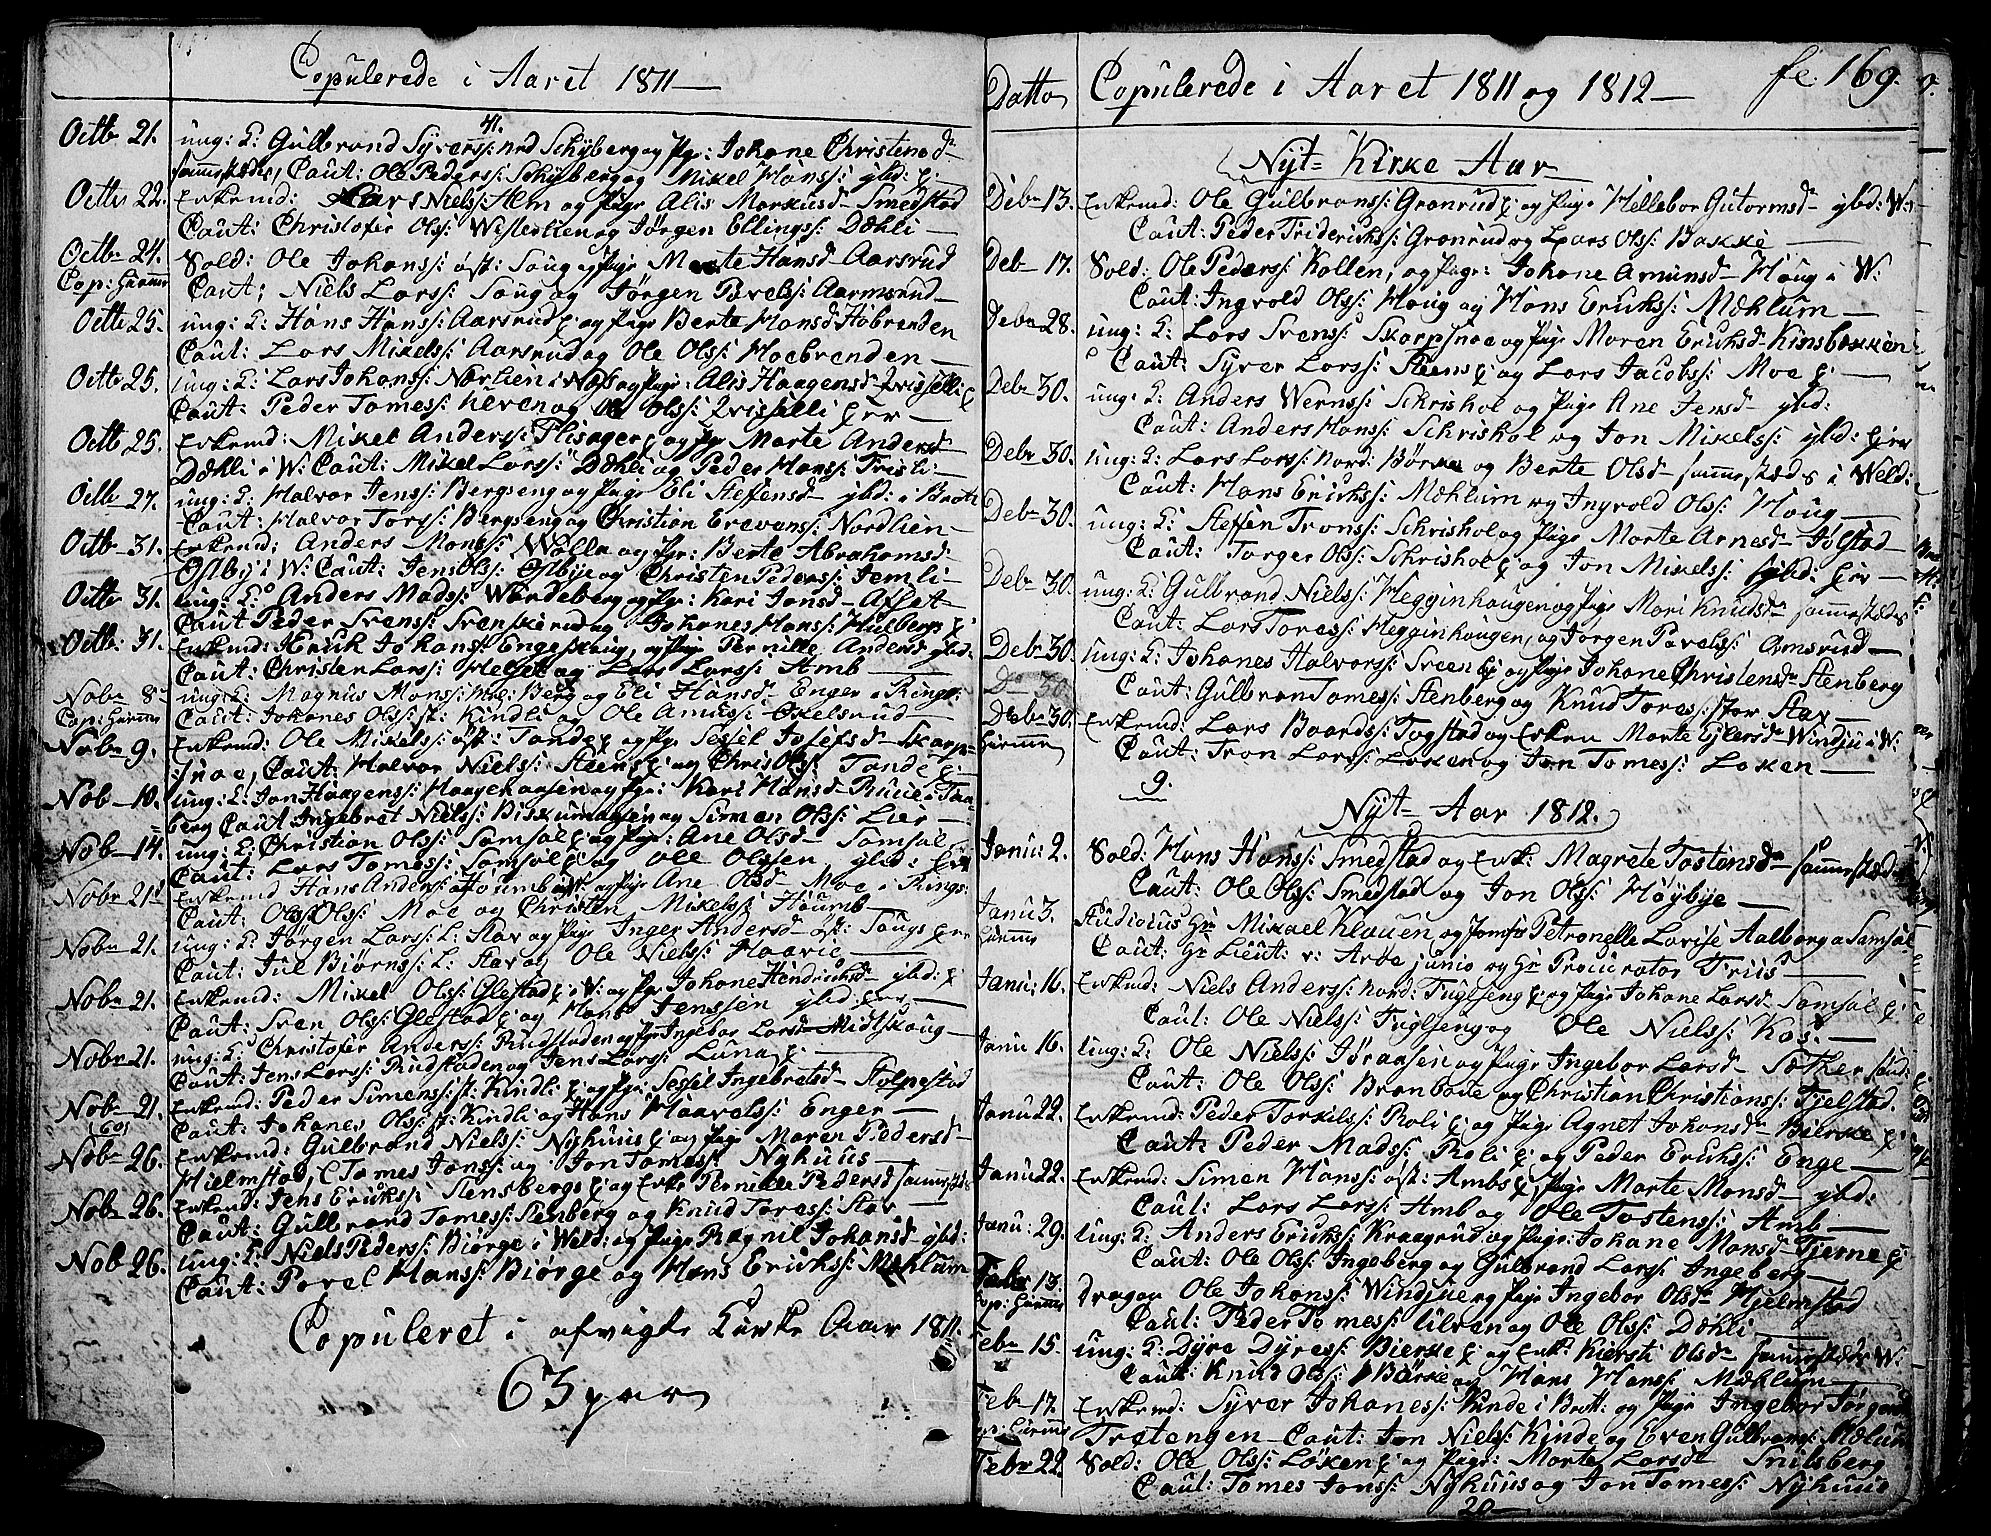 Copulerede i Aaret 1811
41.
Octbr 21. ung: K: Gulbrand Syverss: nord Schyberg og Pge: Johane Christensd
sammestædes, Caut: Ole Pederss: Schyberg og Mikel Hanss: ybd:
Octbr 22. Enkemd: Lars Nielss: Alm og Pige Alis Markusd Smedstad
Caut: Christofer Olss: Wistedlien og Jørgen Ellingss: Dæhli
Octbr 24. Sold: Ole Johanss: øst: Soug og Pige Marte Hansd Aarsrud
Cop: hiemme Caut: Niels Larss: Soug og Jørgen Povelss: Aarmsrud
Octbr 25. ung: K: Hans Hanss: Aarsrud og Pige Berte Hansd Hobrenden
Caut: Lars Mikelss: Aarsrud og Ole Olss: Hoebrenden
Octbr 25. ung: K: Lars Johanss: Nærlien i Næss og Pige: Alis Haagensd Qvisselli
Caut: Peder Tomess: Kleven og Ole Olss: Qvisselli
Octbr 25. Enkemd: Mikel Anderss: Flisager og Pge Marte Andersd
Dæhli i W: Caut: Mikel Larss: Dæhli og Peder Hanss: Frisli
Octbr 27. ung: K: Halvor Jenss: Bergseng og Pige Eli Steffensd ybd: i Brott
Caut: Halvor Torss: Bergseng og Christian Erevanss: Nordlien
Octbr 31. Enkemd: Anders Monss: Wolla og Pge: Berte Abrahamsd
Østby i W: Caut: Jens Olss: Østbye og Christen Pederss: Jemli
Octbr 31. ung: K: Anders Madss: Wardeberg og Pge: Kari Jonsd Asset
Caut Peder Svenss: Svenskerud og Johanes Hanss: Hulbergs
Octbr: 31. Enkemd: Erick Johanss: Engeskoug, og Pige Pernille Andersd ybd:
Caut: Christen Larss: Helset og Lars Larss: Amb
Nobr 8 ung: K: Magnus Monss: Berg og Eli Hansd Enger i Rings:
Cop: hiemme Caut: Johanes Olss: st: Kindli og Ole Amuss: Øxelsrud
Nobr 9. Enkemd: Ole Mikelss: øst: Tande og Pge Sessel Josefsd Skarp-
snoe, Caut: Halvor Nielss: Steens og Chris Olss: Tande
Nob 10. ung: K: Jon Haagenss: Haagehaasen og Pge: Kari Hansd Ruue i Faa-
berg Caut Ingebret Nielss: Biskurhagen og Simen Olss: Lier
Nob 14. ung: K: Christian Olss: Samsal og Pge: Ane Olsd Samsal
Caut: Lars Tomess: Samsal og Ole Olssen ybd:
Nobr 21. Enkemd Hans Anderss: Houmb øst: og Pige Ane Olsd Moe i Rings:
Caut: Ols Olss: Moe og Christen Mikelss: Houmb
Nobr 21. ung: K: Jørgen Larss: L: Stav og Pige Inger Andersd øst: Sougs
Caut: Jul Biørnss: L: Stav og Ole Nielss: Haavie
Nobr 21. Enkemd: Mikel Olss: Glestad i W: og Pge Johane Hendrichsd ybd:
Caut: Sven Olss: Glestad og Hans Jenssen ybd:
Nobr 21. ung: K: Christofer Anderss: Rudstaden og Pge Ingebor Larsd Midtskoug
Caut: Jens Larss: Rudstaden og Jens Larss: Lunag
Nob 21. Enkemd: Peder Simenss: st: Kindli og Pge: Sessel Ingebretsd Stolpestad
(60) Caut: Johanes Olss: st: Kindli og Hans Haavelss: Enger
Nobr 26. Enkemd: Gulbrand Nielss: Nyhuus og Pige Maren Pedersd
Hielmstad, C Tomes Jonss: og Jon Tomess: Nyhuus
Nobr 26. Enkemd: Jens Erikss: Stensberg og Enke Pernille Pedersd sammestds
Caut: Gulbrand Tomess: Stenberg og Knud Toress: Stav
Nob 26. ung: K: Niels Pederss: Biørge i Weld: og Pige Ragnil Johansd ybd:
Caut: Povel Hanss: Biørge og Hans Erichss: Mæhlum
Copuleret i afvigte Kirke Aar 1811.
63 par
Datto Copulerede i Aaret 1811 og 1812 fe. 169.
Nyt= Kirke Aar
Debr 13. Enkemd: Ole Gulbranss: Grønrud og Pige Hellebor Gutormsd ybd: W:
Caut: Peder Friderichss: Grønrud og Lars Olss: Bakke
Deb 17. Sold: Ole Pederss: Kollen, og Pige: Johane Amunsd Houg i W:
Caut: Ingvold Olss: Houg og Hans Erichss: Mæhlum
Debr 28. ung: K: Lars Svenss: Skarpsnoe og Pige Maren Erichsd Kinsbakken
Caut: Syver Larss: Steens og Lars Jacobss: Moe
Deb 30. ung: K: Anders Wernss: Schrishol og Pige Ane Jensd ybd:
Caut: Anders Hanss: Schrishol og Jon Mikelss: ybd:
Debr 30. ung: K: Lars Larss: nord: Børke og Berte Olsd sammestæds i Weld:
Caut: Hans Erichss: Mæhlum og Ingvold Olss: Houg
Debr 30. ung: K: Steffen Tronss: Schrishol og Pige Marte Arnesd Jølstad
Caut: Torger Olss: Schrishol og Jon Mikelss: ybd:
Debr 30. ung: K: Gulbrand Nielss: Hegginhaugen og Pige Mari Knudsd sammestædes
Caut: Lars Toress: Hegginhaugen, og Jørgen Povelss: Amsrud
Debr 30. ung: K: Johanes Halvorss: Sveen og Pige Johane Christensd Stenberg
D 30 Caut: Gulbran Tomess: Stenberg og Knud Toress: stor Stav
Debr 30. Enkemd: Lars Baardss: Togstad og Enken Marte Ejlersd Windju i W:
hiemme Caut: Tron Larss: Løken og Jon Tomess: Loken
9.
Nyt= Aar 1812.
Janu: 2. Sold: Hans Hanss: Smedstad og Enk: Magrete Tostensd sammestæd
Caut: Ole Olss: Smedstad og Jon Olss: Høybye
Janu 3. Studiosus Hr Mikael Klouen og Jomfr Petronelle Lovise Aalborg a Samsal
hiemme Caut: Hr Lieut: v: Arbe junio og Hr Procurator Friis
Janu: 16. Enkemd: Niels Anderss: nord: Fuglseng og Pige Johane Larsd Samsal
Caut: Ole Nielss: Fuglseng og Ole Nielss: Kos:
Janu 16. ung: K: Ole Nielss: Jøraasen og Pige Ingebor Larsd Sølker
Caut: Ole Olss: Branbode og Christian Christianss: Fjelstad.
Janu 22. Enkemd: Peder Torkilss: Roli og Pige Agnet Johansd Bierke
Caut: Peder Madss: Roli og Peder Erichss: Enge
Janu 22. Enkemd: Simen Hanss: øst: Ambs, Pige Marte Monsd ybd:
Caut: Lars Larss: Amb og Ole Tostenss: Amb
Janu: 29. ung: K: Anders Erichss: Kraagrud og Pige: Johane Monsd Tjerne
Caut: Ole Olss: Ingeberg og Gulbrand Larss: Ingeberg
Febr 13. dragon Ole Johanss: Windjue og Pige Ingebor Olsd Hjelmstad
Cop: hiemme Caut: Peder Tomess: Ulven og Ole Olss: Dæhli
Febr 15. ung: K: Dyre Dyress: Bierke og Enk: Kiersti Olsd sammestæds W:
Caut: Knud Olss: Børke og Hans Hanss: Mæhlum
Febr 17. Enkemd: Syver Johaness: Kinde i Brott: og Pige Ingebor Jørgensd
hiemme Tretengen Caut: Jon Nielss: Kinde og Even Gulbranss: Mælum
Febr 22. Sold: Ole Olss: Løken og Pige: Marte Larsd Snilsberg
Caut: Tomes Jonss: Nyhuus og Jon Tomess: Nyhuus
20